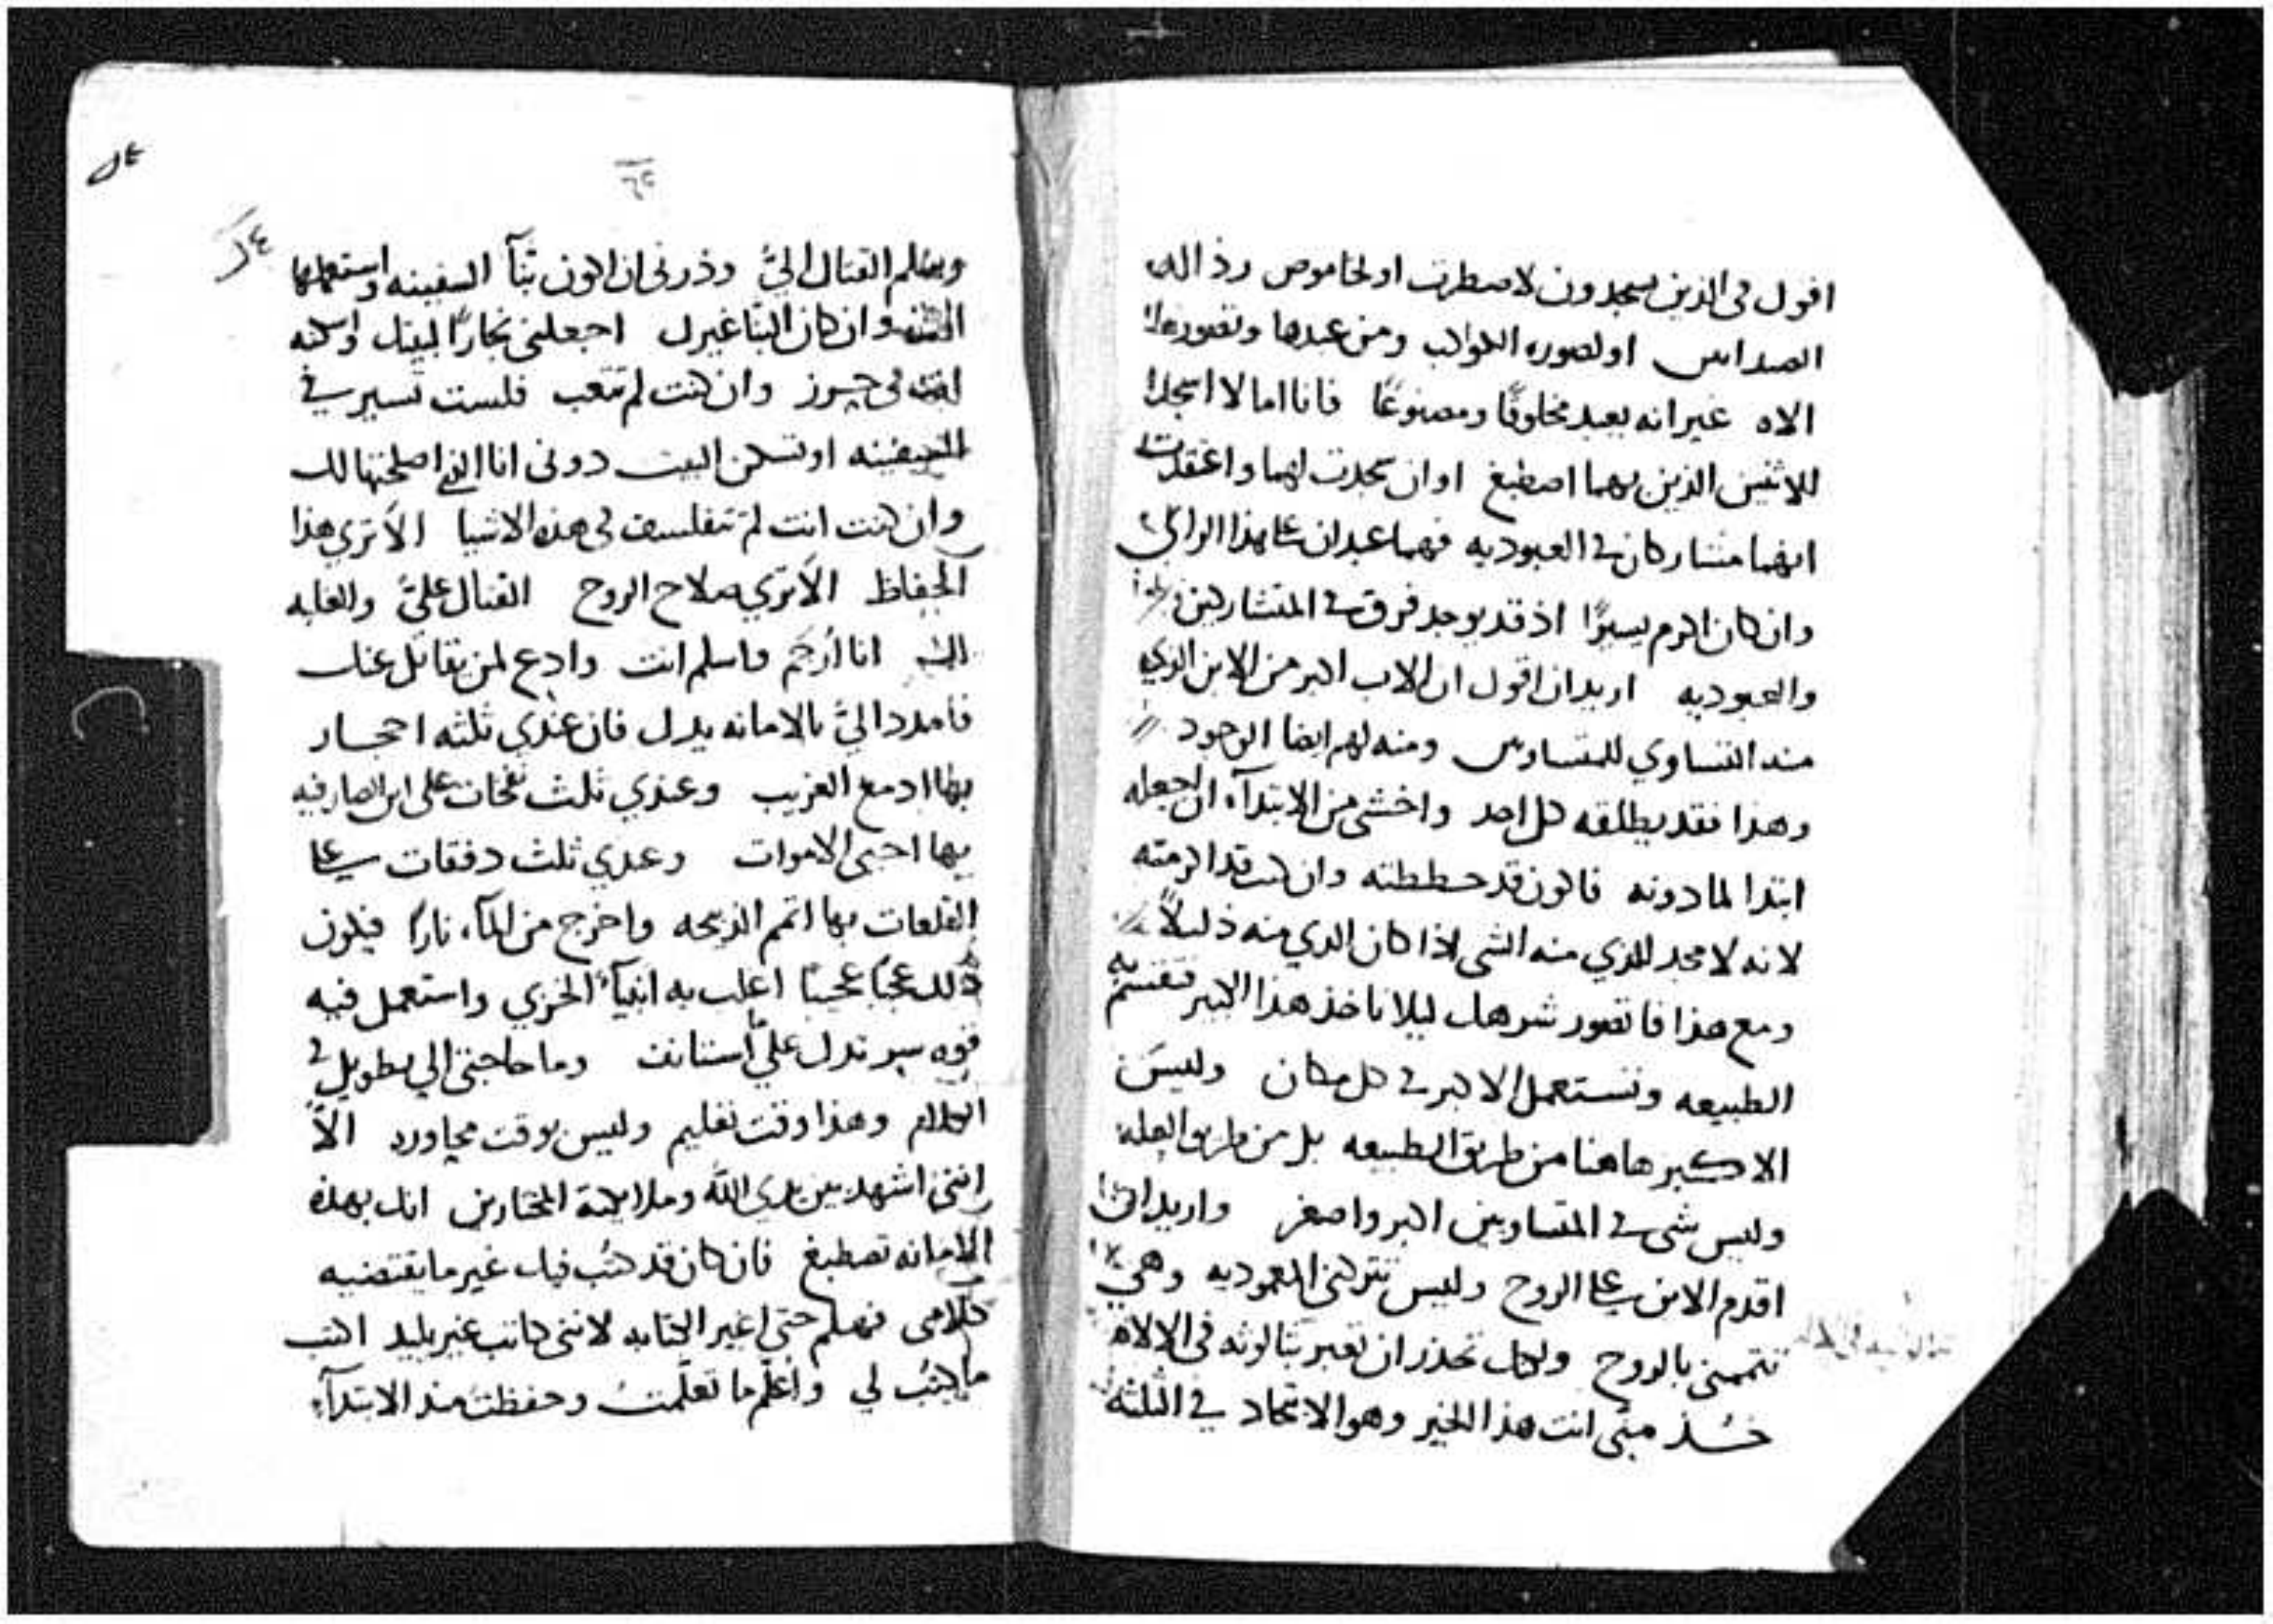 اقول في الذين يسجدون لاصطرت او لخاموص رذاله
الصدانين او لصوره الكواكب ومن عبدها وتصورها
الاه غير انه يعبد مخلوقًا ومصنوعًا فانا اما لا اسجد
للاثنين الذين بهما اصطبغ او ان سجدت لهما واعتقدت
انهما متشاركان في العبوديه فهما عبدان على هذا الراي
وان كان اكرم يسيرًا اذ قد يوجد فرق في المتشاركين
والعبوديه اريد ان اقول ان الاب اكبر من الابن الذي
منه التساوي للمتساوين ومنه لهم ايضا الوجود
وهذا فقد يطلقه كل احد واخشى من الابتدآء ان اجعله
ابتدا لما دونه فاكون قد حططته وان كنت قد اكرمته
لانه لا مجد للذي منه الشي اذا كان الذي منه ذليلاً
ومع هذا فاتصور شرهك ليلا تاخذ هذا الاكبر فتقسم به
الطبيعه وتستعمل الاكبر في كل مكان وليسَ
الاكبر هاهنا من طريق الطبيعه بل من طريق العله
وليس شي في المتساويين اكبر واصغر واريد ان
اقدم الابن على الروح وليس تتركني المعموديه وهي
تتممني بالروح ولكنك تحذر ان تعير بتالوثه في الالاه
خُذ مني انت هذا الخير وهو الاتحاد في الثلثه
٦٥
وسلم القتال اليَّ وذرني ان اكون بنّآ السفينه واستعملها
انت وان كان البنا غيرك اجعلني نجارًا لبيتك واسكنه
انت في حرز وان كنت لم تتعب فلست تسير في
السفينه او تسكن البيت دوني انا الذي اصلحتها لك
وان كنت انت لم تتفلسف في هذه الاشيا الاترى هذا
الحفاظ الاترى صلاح الروح القتال عليَّ والغلبه
لك انا أُرجَم فاسلم انت وادع لمن يقاتل عنك
فامدد اليَّ بالامانه يدك فان عندي ثلثه احجار
بها ادمع الغريب وعندي ثلث نفخات على ابن الصارفيه
بها احيي الاموات وعندي ثلث دفقات على
القلعات بها اتم الذبيحه واخرج من المآء نارًا فيكون
ذلك عجبًا عجيبًا اغلب به انبيآء الخزي واستعمل فيه
قوه سر تدل عليّ است انت وما حاجتي الي تطويل في
الكلام وهذا وقت تعليم وليس بوقت مجاورد الاّ
انني اشهد بين يدي اللّه وملايكته المختارين انك بهذه
الامانه تصطبغ فان كان قد كتُب فيك غير ما يقتضيه
كلامي فهلم حتى اغير الكتابه لانني كاتب غير بليد اكتب
ما كُتب لي واُعلّم ما تعلّمتُ وحفظتُ منذ الابتدآء